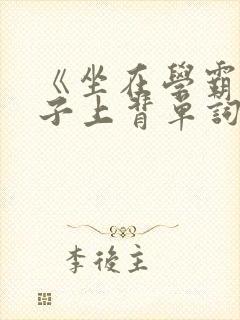 《坐在學霸
子上背單詞
李後主